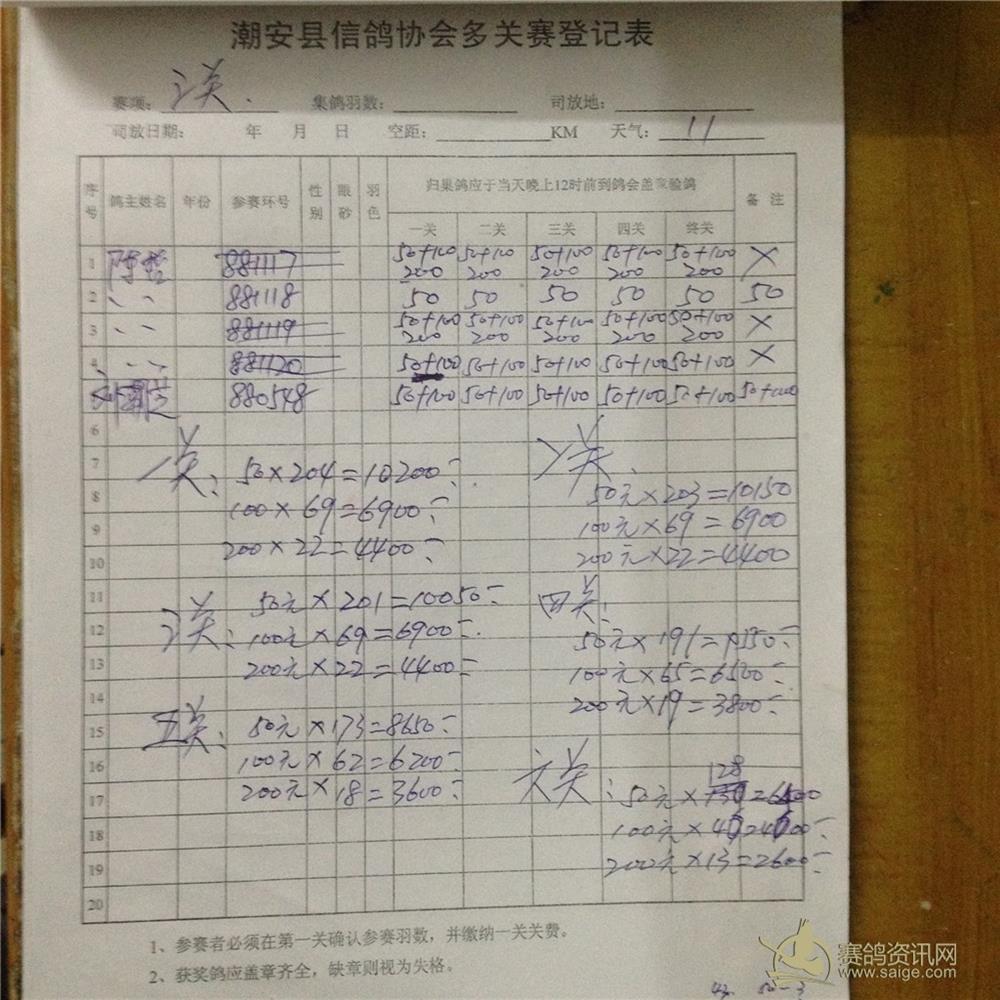 潮安县信鸽协会多关赛登记表
赛项: 三关. 集鸽羽数: 司放地:
司放日期: 年 月 日 空距: KM 天气: 11
序号 鸽主姓名 年份 参赛环号 性别 眼砂 羽色 归巢鸽应于当天晚上12时前到鸽会盖章验鸽 备 注
一关 二关 三关 四关 终关
1 881117 50+100 50+100 50+100 50+100 50+100 ×
200 200 200 200 200
2 、、 881118 50 50 50 50 50 50
3 、、 881119 50+100 50+100 50+100 50+100 50+100 ×
200 200 200 200 200
4 、、 881120 50+100 50+100 50+100 50+100 50+100 ×
880548 50+100 50+100 50+100 50+100 50+100 50+100
6
7
8
9
10
11
12
13
14
15
16
17
18
19
20
一关: 50×204=10200
100×69=6900
200×22=4400
二关
50元×203=10150
100元×69=6900
200元×22=4400
三关: 50元×201=10050
100元×69=6900
200元×22=4400
四关:
50元×191=
100元×65=6500
200元×19=3800
五关: 50元×173=8650
100元×62=6200
200元×18=3600
六关: 50元×128=6400
100元×
200元×13=2600
1、参赛者必须在第一关确认参赛羽数，并缴纳一关关费。
2、获奖鸽应盖章齐全，缺章则视为失格。
赛鸽资讯网
www.saige.com